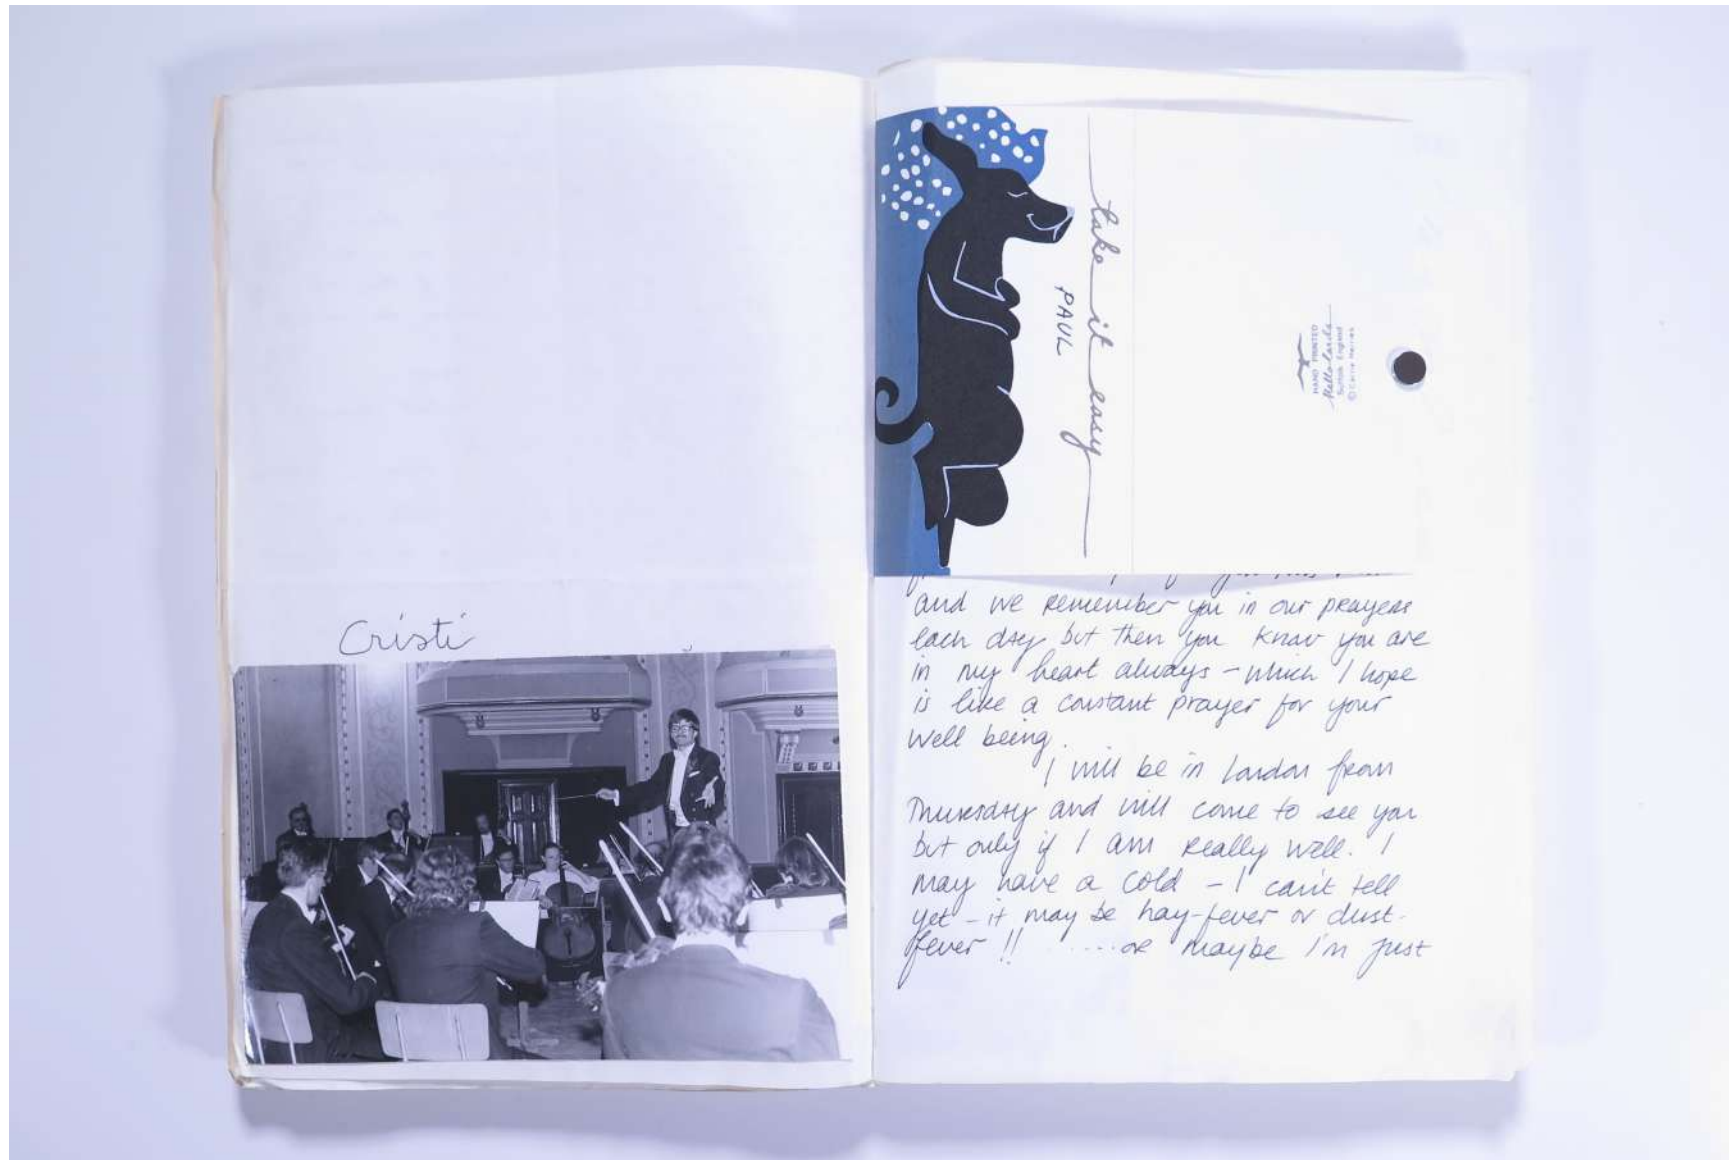 Cristi
take it easy
PAUL
HAND PRINTED
Hello Cards
Suffolk England
and we remember you in our prayers
each day but then you know you are
in my heart always – which I hope
is like a constant prayer for your
well being.
I will be in London from
Thursday and will come to see you
but only if I am really well. I
may have a cold – I can't tell
yet – it may be hay-fever or dust-
fever !! ..... or maybe I'm just